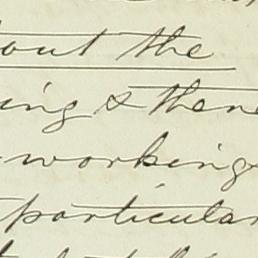 out the
ing & there
working
particular